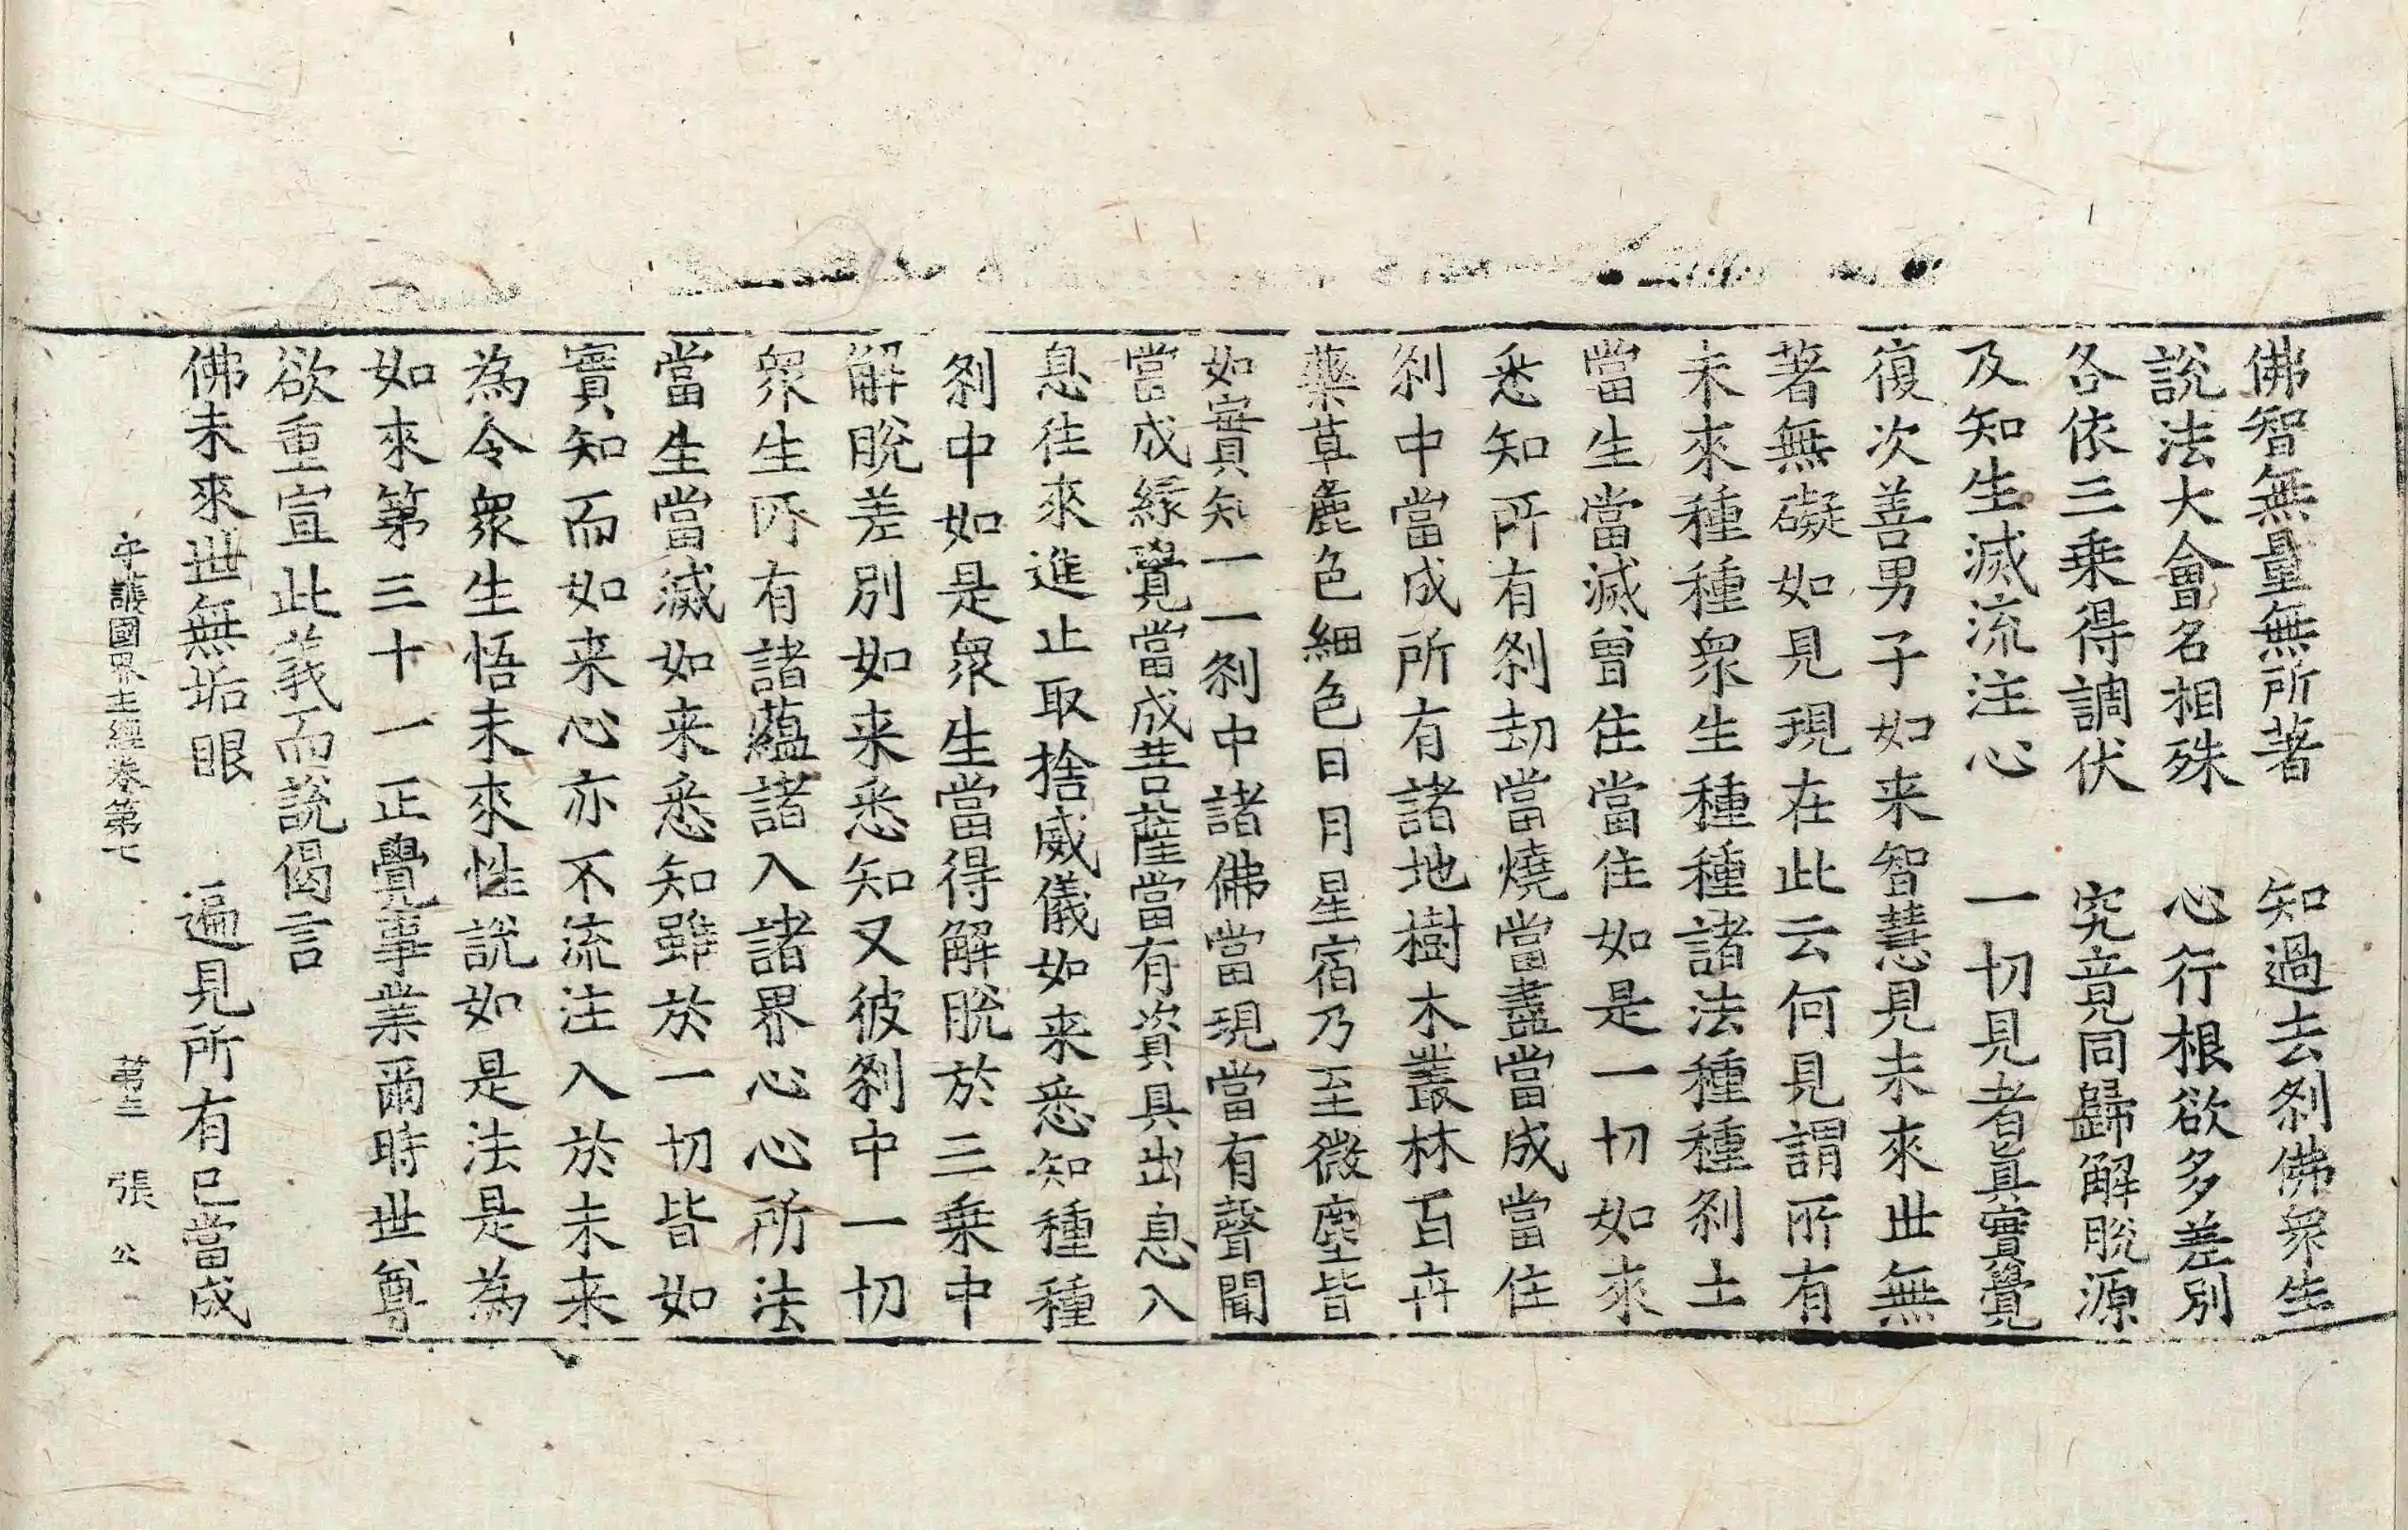 佛智無量無所著　知過去刹佛衆生
說法大會名相殊　心行根欲多差別
各依三乗得調伏　究竟同歸解脫源
及知生滅流注心　一切見者眞實覺
復次善男子如来智慧見未來世無
著無礙如見現在此云何見謂所有
未來種種衆生種種諸法種種刹土
當生當滅曾住當住如是一切如來
悉知所有刹劫當燒當盡當成當住
刹中當成所有諸地樹木叢林百卉
藥草麁色細色日月星宿乃至微塵皆
如實知一一刹中諸佛當現當有聲聞
當成緣覺當成菩薩當有資具出息入
息往來進止取捨威儀如来悉知種種
刹中如是衆生當得解脫於三乗中
解脫差別如来悉知又彼刹中一切
衆生所有諸蘊諸入諸界心心所法
當生當滅如来悉知雖於一切皆如
實知而如来心亦不流注入於未来
為令衆生悟未來性說如是法是為
如來第三十一正覺事業爾時世尊
欲重宣此義而說偈言
佛未來世無垢眼　遍見所有已當成
守護國界主經卷第七　第三　張　公